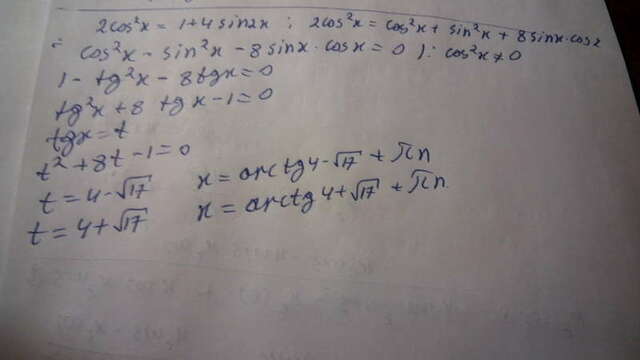 2cos²x = 1+4sin2x ; 2cos²x = cos²x + sin²x + 8sinx·cosx
cos²x - sin²x - 8sinx·cosx = 0 |: cos²x ≠ 0
1 - tg²x - 8tgx = 0
tg²x + 8 tgx - 1 = 0
tgx = t
t² + 8t - 1 = 0
t = 4 - √17 x = arctg 4 - √17 + πn
t = 4 + √17 x = arctg 4 + √17 + πn